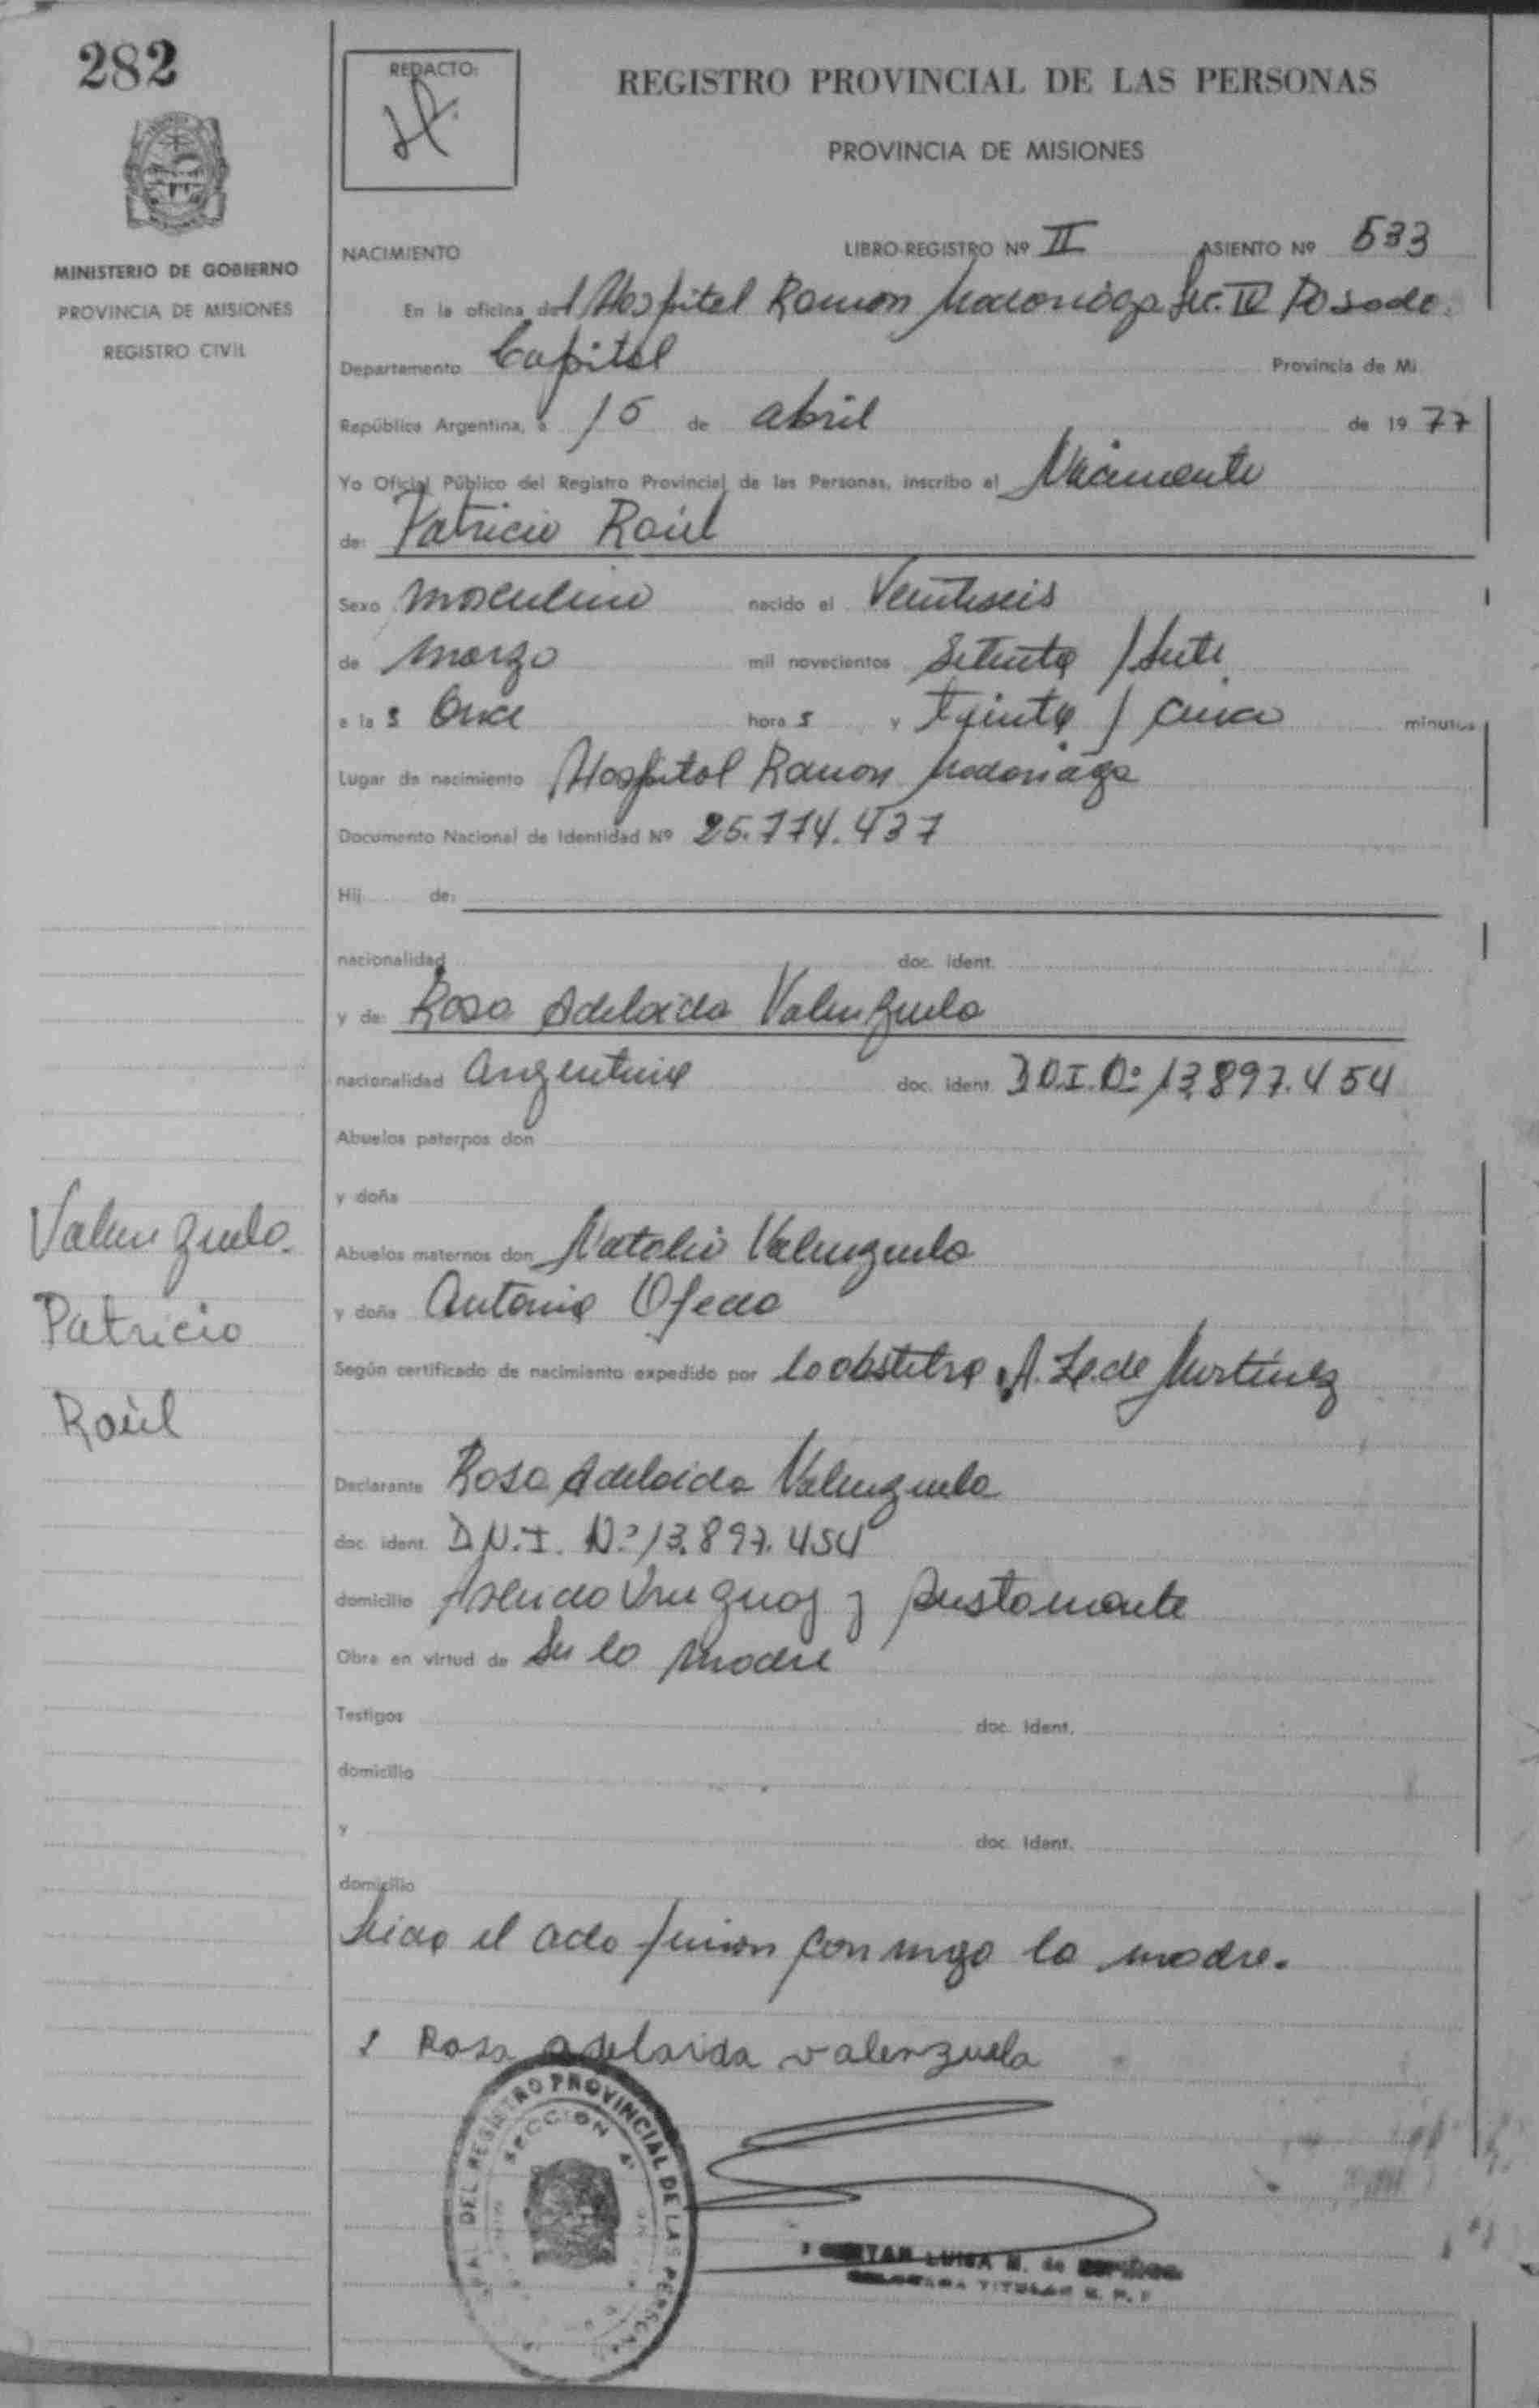 282
REDACTO:
REGISTRO PROVINCIAL DE LAS PERSONAS
PROVINCIA DE MISIONES
MINISTERIO DE GOBIERNO
PROVINCIA DE MISIONES
REGISTRO CIVIL
NACIMIENTO LIBRO-REGISTRO Nº II ASIENTO Nº 533
En la oficina del Hospital Ramon Madoriaga Sec. IV Posada
Departamento Capital Provincia de Mi
República Argentina, a 15 de abril de 1977
Yo Oficial Público del Registro Provincial de las Personas, inscribo el Nacimiento
de: Patricio Raúl
Sexo masculino nacido el Veintiseis
de marzo mil novecientos Setenta / Siete
a las Once horas y treinta / cinco minutos
Lugar de nacimiento Hospital Ramon Madoriaga
Documento Nacional de Identidad Nº 25.774.437
Hij de:
nacionalidad doc. ident.
y de: Rosa Adelaida Valenzuela
nacionalidad Argentina doc. ident. D.N.I. Nº 13.897.454
Abuelos paternos don
y doña
Valenzuela
Abuelos maternos don Natalio Valenzuela
Patricio
y doña Antonia Ojeda
Según certificado de nacimiento expedido por la obstetra A. Z. de Martínez
Raúl
Declarante Rosa Adelaida Valenzuela
doc. ident. D.N.I. Nº 13.897.454
domicilio Uruguay y Bustamante
Obra en virtud de Ser la madre
Testigos doc. ident.
domicilio
y doc. ident.
domicilio
Leida el acta firman conmigo la madre.
Rosa adelaida valenzuela
DEL REGISTRO PROVINCIAL DE LAS PERSONAS
SECCION 4ª
LUISA M. de
TITULAR R. P. P